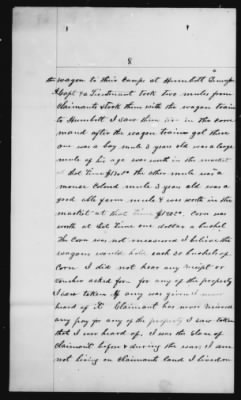 8
the wagon to their Camps at Humbolt Tenn
A Capt & a Lieutenant took two mules from
Claimants & took them with the wagon train
to Humbolt I saw them in the com
mand after the wagon train got there
one was a bay mule 3 years old was a large
mule of his age was worth in the market
at that time $150⁰⁰ the other mule was a
mouse Colored mule 3 years old was a
good able farm mule & was worth in the
market at that time Corn was
worth at that time one dollar a bushel
The Corn was not measured I believe the
wagons would hold each 30 bushels of
Corn I did not hear any receipt or
voucher asked for for any of the property
I saw taken If any was given I never
heard of it Claimant has never received
any pay for any of the property I saw taken
that I ever heard of. I was the slave of
Claimant before & during the war. I am
not living on Claimants land I live on